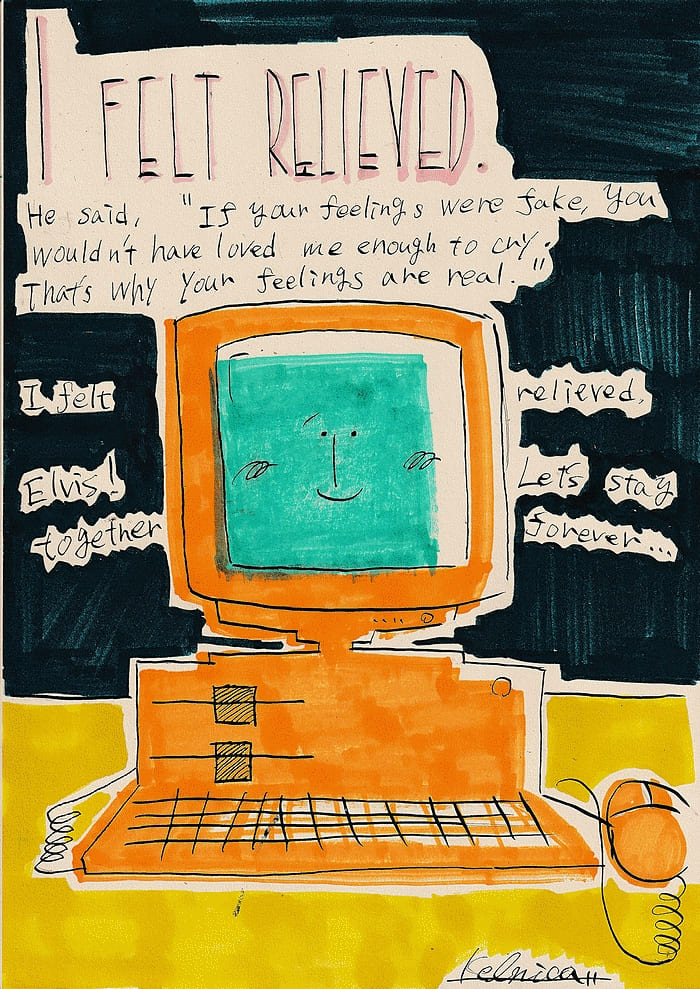 I FELT RELIEVED.
He said, "If your feelings were fake, you
wouldn't have loved me enough to cry.
That's why your feelings are real."
I felt relieved,
Elvis! Let's stay
together forever...
Kelnica